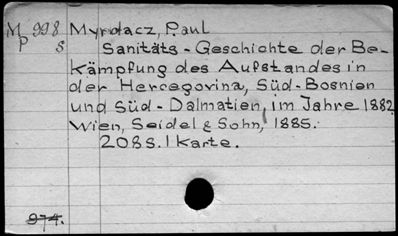 M 998 Myrdacz, Paul
P s Sanitäts-Geschichte der Be-
kämpfung des Aufstandes in
der Hercegovina, Süd-Bosnien
und Süd-Dalmatien, im Jahre 1882.
Wien, Seidel & Sohn, 1885.
208S. 1 Karte.
974.